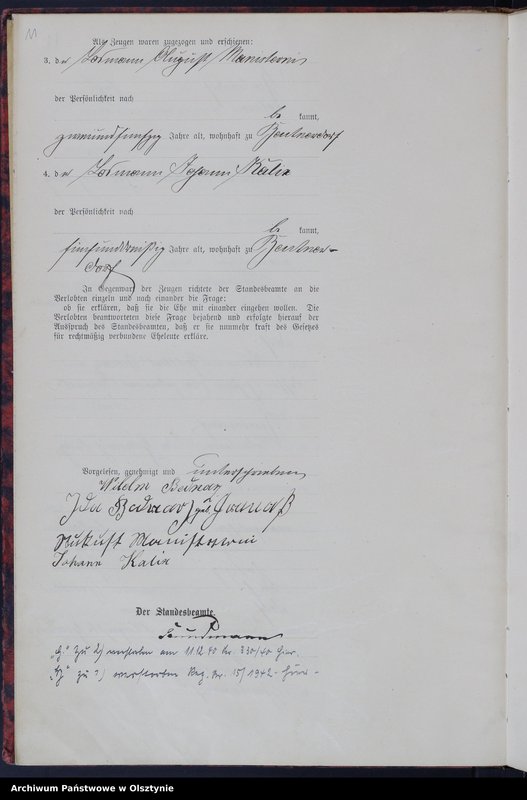 11
Als Zeugen waren zugezogen und erschienen:
3. der Losmann August Manistowni
der Persönlichkeit nach
be kannt,
zweiundfünfzig Jahre alt, wohnhaft zu Beutnerdorf
4. der Losmann Johann Kalix
der Persönlichkeit nach
be kannt,
fünfunddreißig Jahre alt, wohnhaft zu Beutner-
dorf
In Gegenwart der Zeugen richtete der Standesbeamte an die
Verlobten einzeln und nach einander die Frage:
ob sie erklären, daß sie die Ehe mit einander eingehen wollen. Die
Verlobten beantworteten diese Frage bejahend und erfolgte hierauf der
Ausspruch des Standesbeamten, daß er sie nunmehr kraft des Gesetzes
für rechtmäßig verbundene Eheleute erkläre.
Vorgelesen, genehmigt und unterschrieben
Wilhelm Bednarz
Ida Bednarz geb
August Manistowni
Johann Kalix
Der Standesbeamte.
verstorben am 11.12.40 Nr. 330/40 hier.
verstorben Reg. Nr. 15/1942 hier
Archiwum Państwowe w Olsztynie